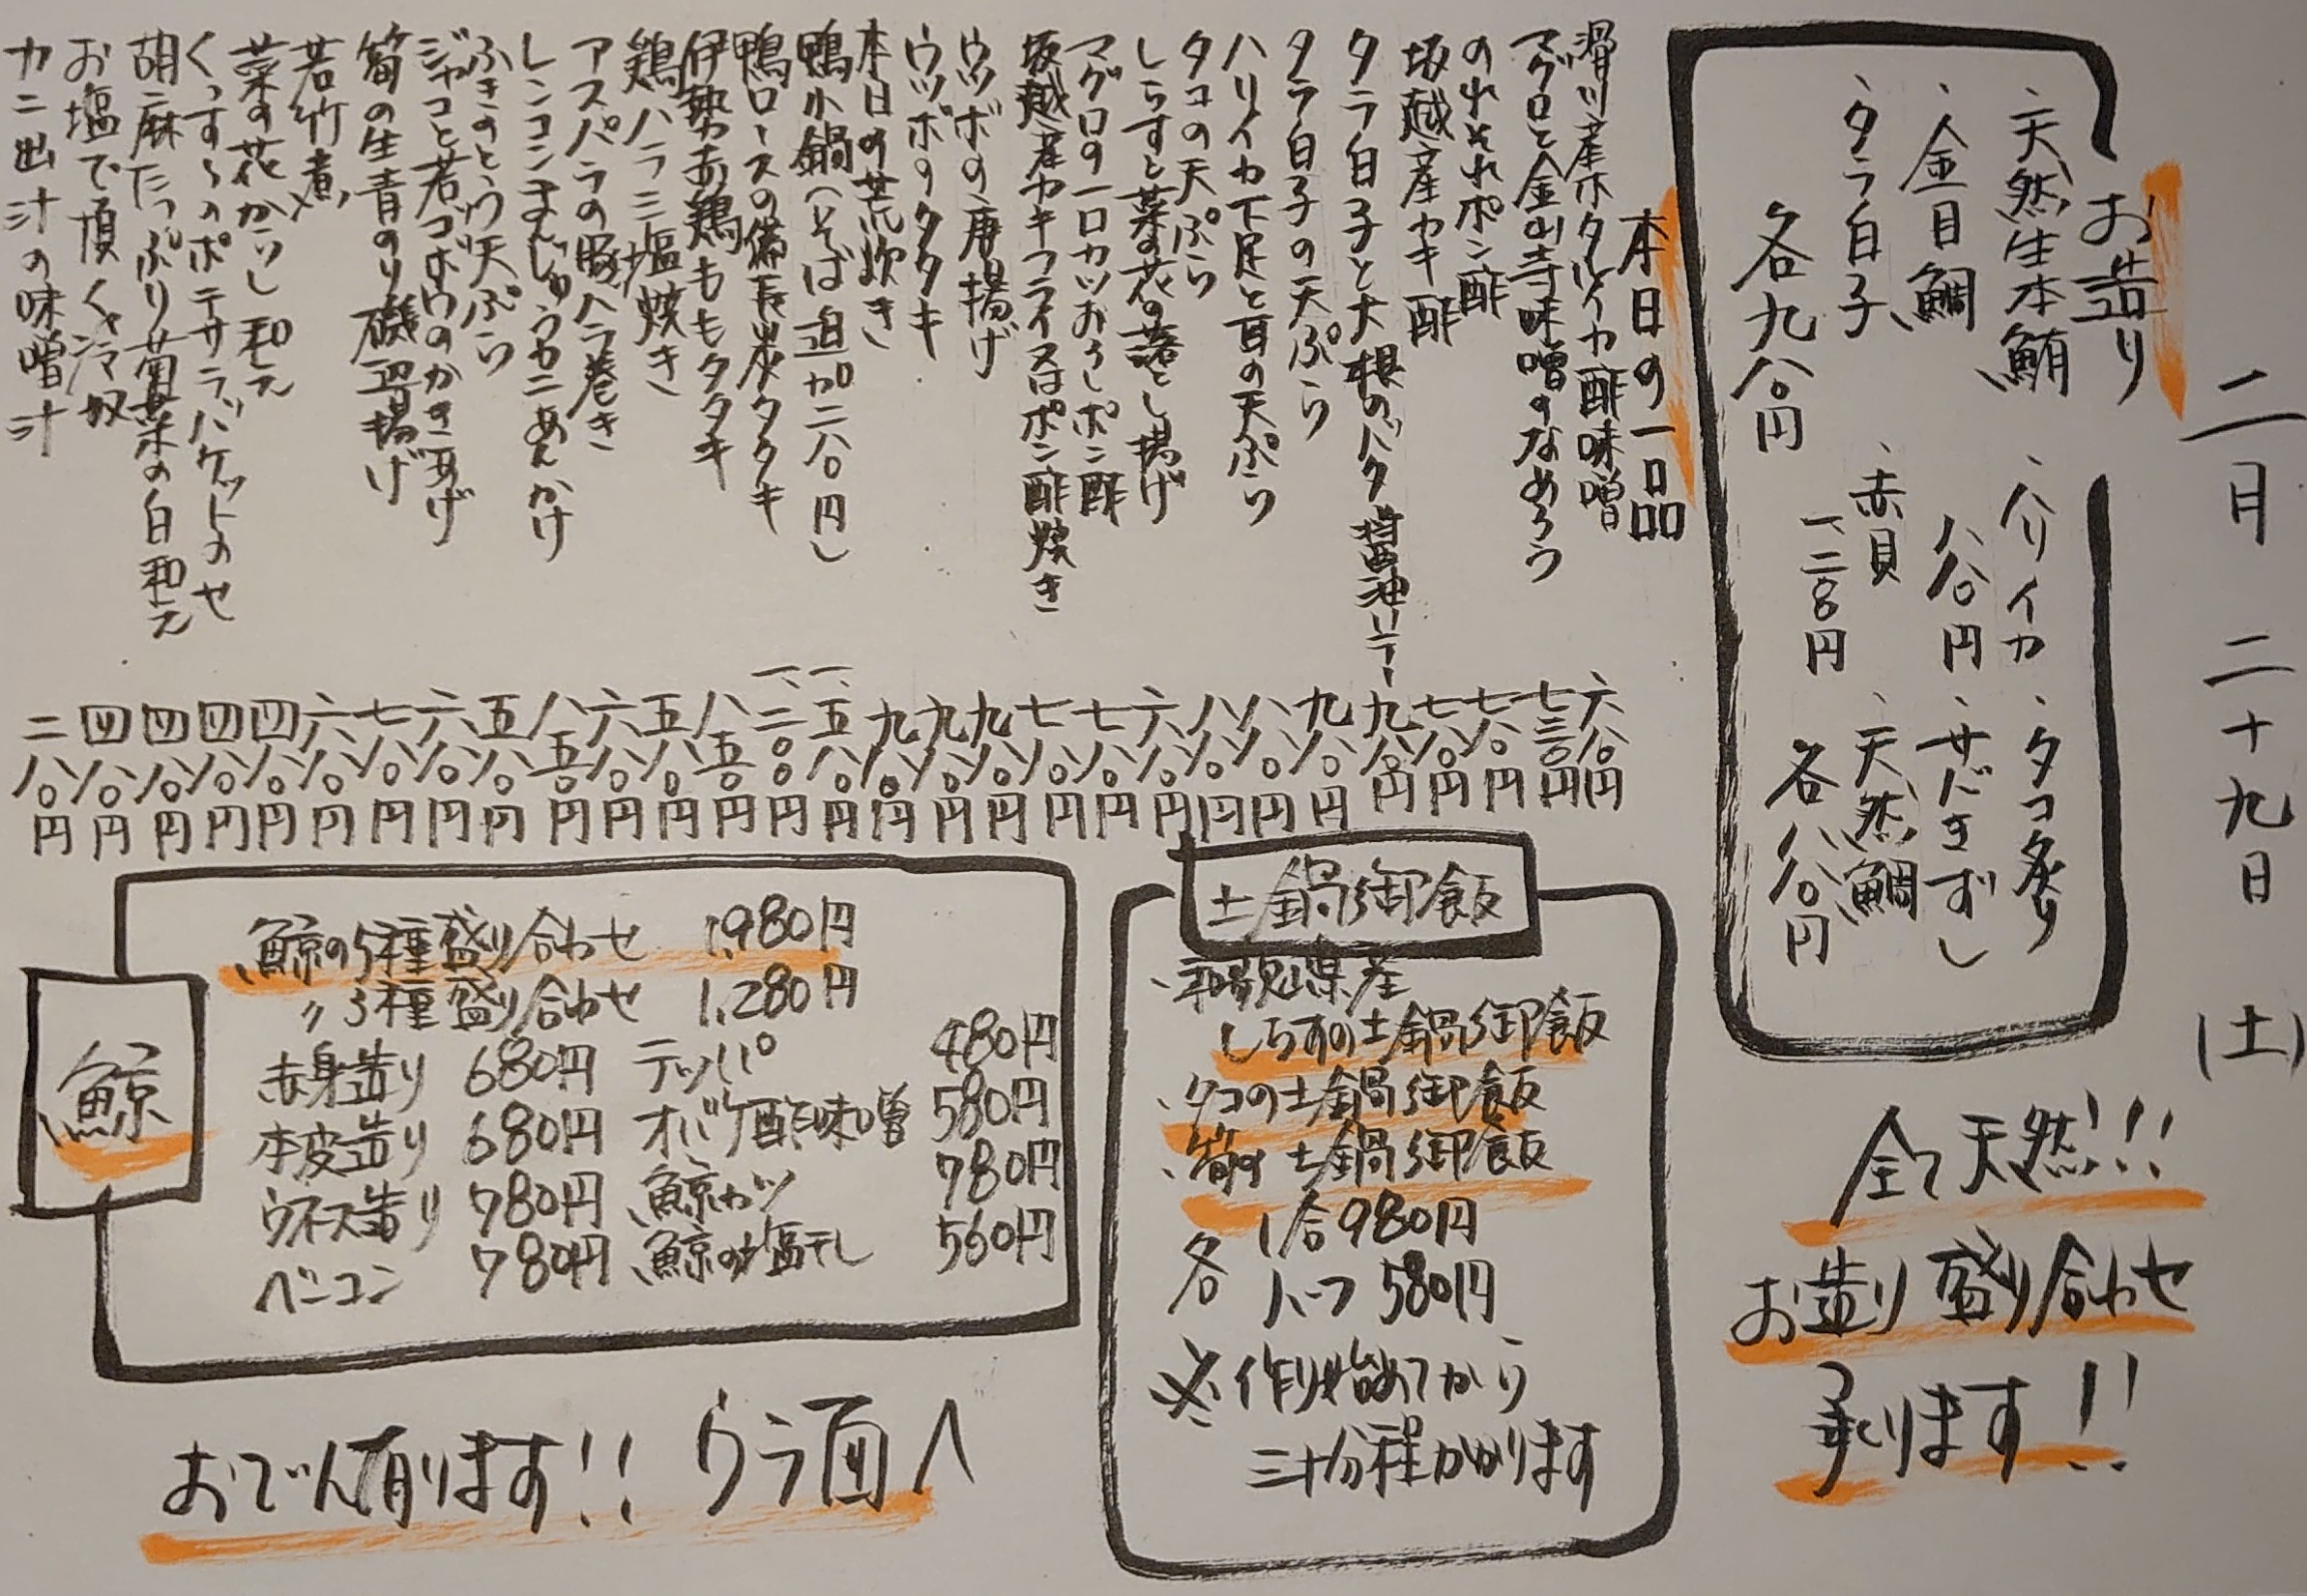 二月二十九日(土)
お造り
、天然生本鮪
、金目鯛
、タラ白子
各九八〇円
、ハリイカ
八八〇円
、赤貝
一、二八〇円
、タコ炙り
、サバきずし
、天然鯛
各八八〇円
全て天然!!!
お造り盛り合わせ
承ります!!
本日の一品
滑川産ホタルイカ酢味噌 六八〇円
マグロと金山寺味噌のなめろう 七三〇円
のれそれポン酢 七八〇円
坂越産カキ酢 七八〇円
タラ白子と大根のバター醤油ソテー 九八〇円
タラ白子の天ぷら 九八〇円
ハリイカ下足と耳の天ぷら 八八〇円
タコの天ぷら 八八〇円
しらすと菜の花の落とし揚げ 六八〇円
マグロの一口カツおろしポン酢 七八〇円
坂越産カキフライ又はポン酢焼き 七八〇円
ウツボの唐揚げ 九八〇円
ウツボのタタキ 九八〇円
本日の荒炊き 九八〇円
鴨小鍋(そば追加二八〇円) 一、五八〇円
鴨ロースの備長炭タタキ 一、二〇〇円
伊勢赤鶏ももタタキ 八五〇円
鶏ハラミ塩焼き 五八〇円
アスパラの豚バラ巻き 六八〇円
レンコンまんじゅうカニあんかけ 八五〇円
ふきのとう天ぷら 五八〇円
ジャコと若ゴボウのかき揚げ 六八〇円
筍の生青のり磯部揚げ 七八〇円
若竹煮 六八〇円
菜の花からし和え 四八〇円
くっすんのポテサラバケットのせ 四八〇円
胡麻たっぷり菊菜の白和え 四八〇円
お塩で頂く冷奴 四八〇円
カニ出汁の味噌汁 二八〇円
土鍋御飯
、和歌山県産
しらすの土鍋御飯
、タコの土鍋御飯
、筍の土鍋御飯
各 1合980円
ハーフ 580円
※作り始めてから
三十分程かかります
鯨
鯨の5種盛り合わせ 1,980円
〃3種盛り合わせ 1,280円
赤身造り 680円 テッパ 480円
本皮造り 680円 オバケ酢味噌 580円
ウネス造り 780円 鯨カツ 780円
ベーコン 780円 鯨の塩干し 560円
おでん有ります!! ウラ面へ